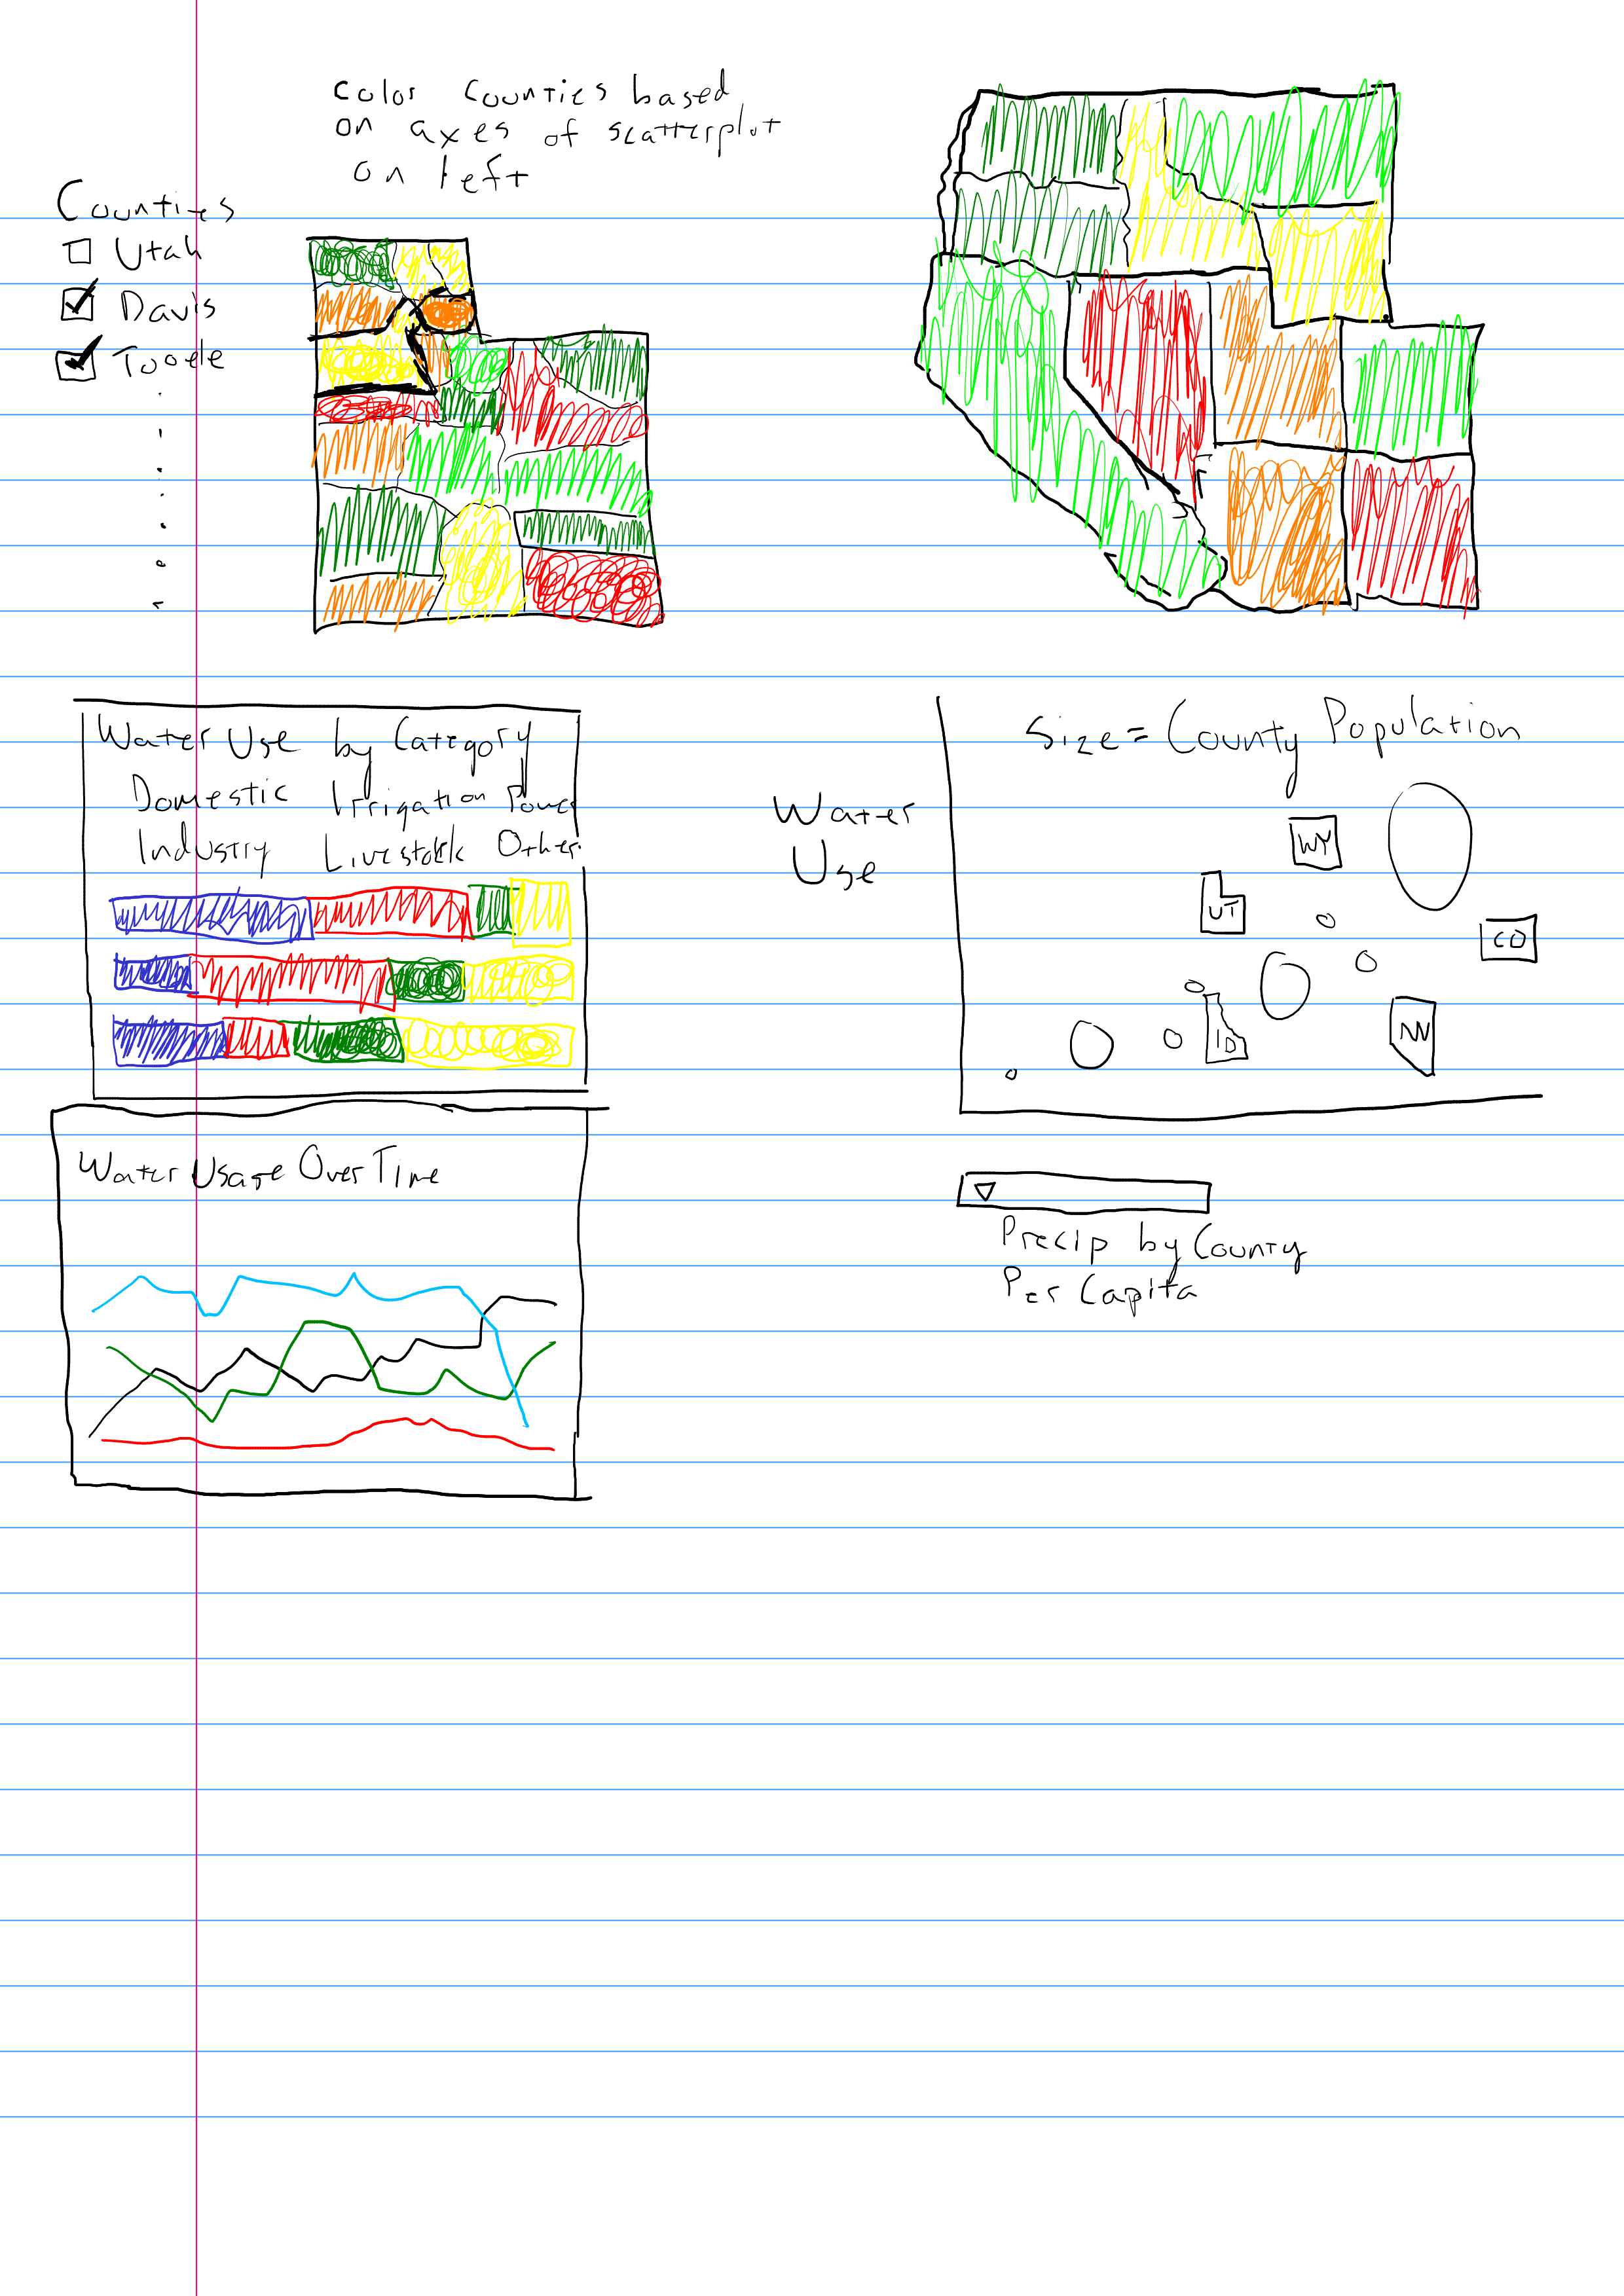 Color Counties based
on axes of scatterplot
on left
Counties
Utah
Davis
Tooele
Water Use by Category
Domestic Irrigation Power
Industry Livestock Other
Size = County Population
Water
Use
WY
UT
CO
ID
NV
Water Usage Over Time
Precip by County
Per Capita